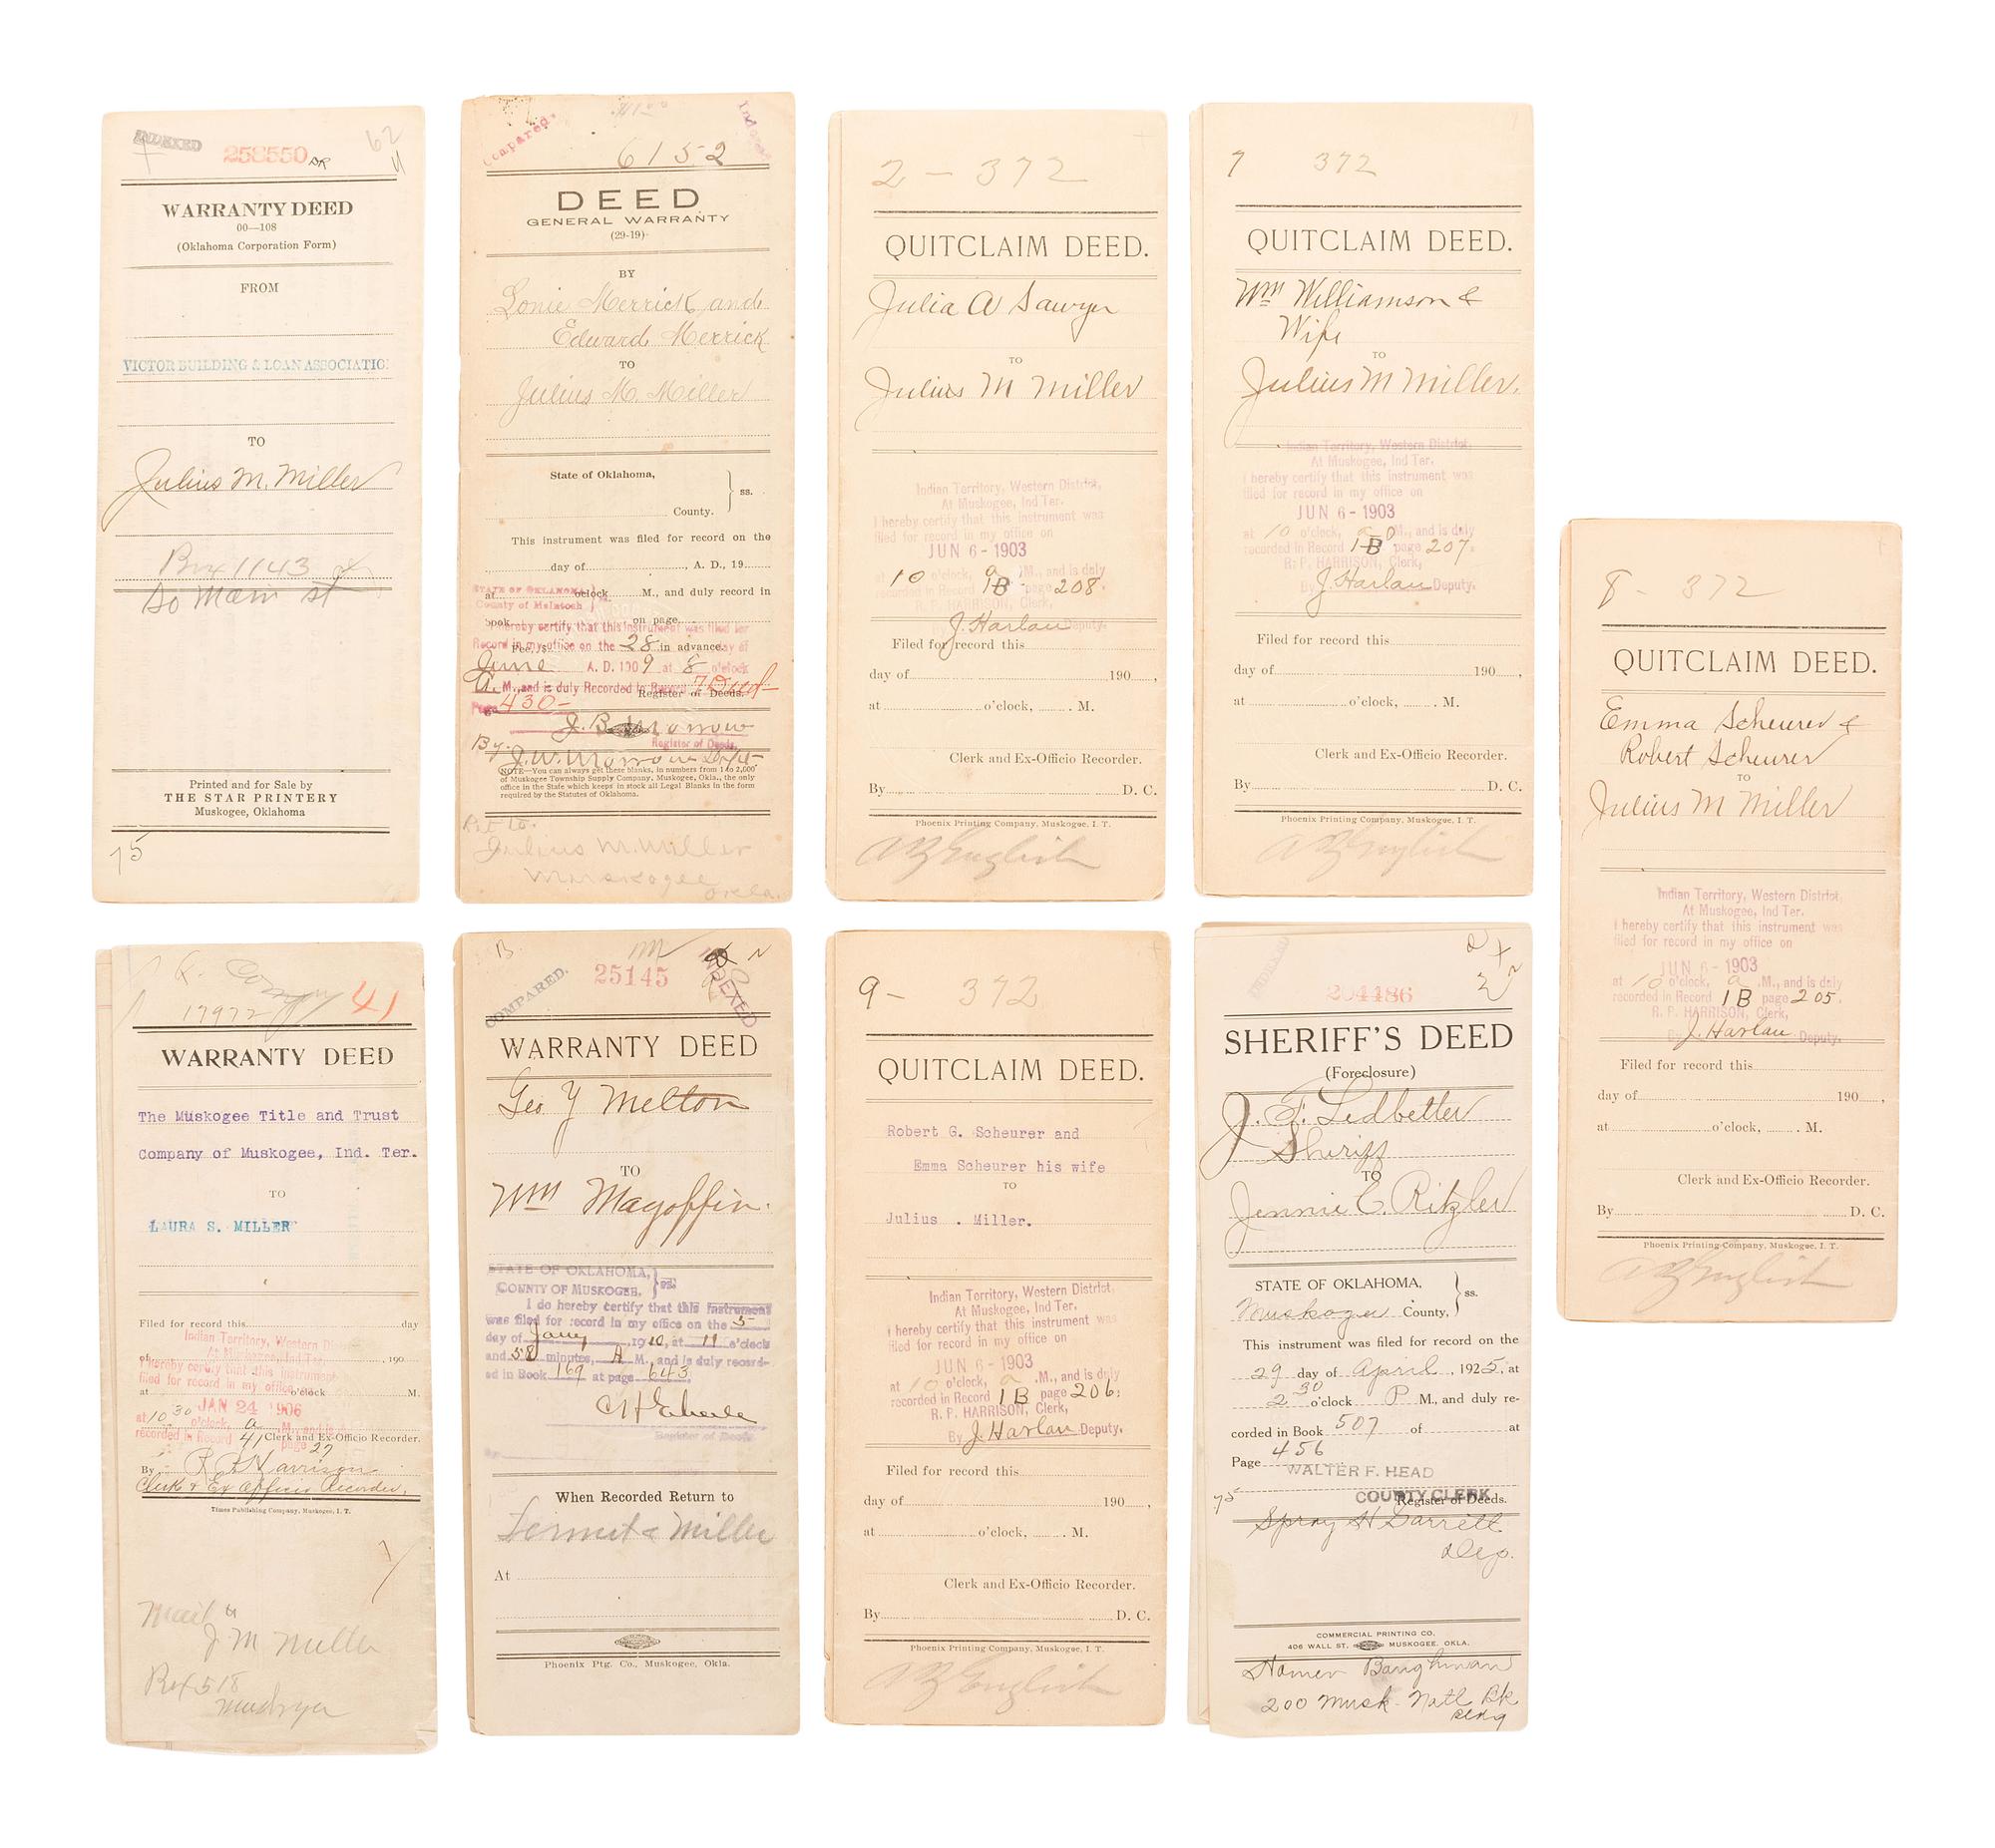 INDEXED
258550
62
WARRANTY DEED
00—108
(Oklahoma Corporation Form)
FROM
VICTOR BUILDING & LOAN ASSOCIATIO
TO
Julius M. Miller
Box 1143
So Main St
Printed and for Sale by
THE STAR PRINTERY
Muskogee, Oklahoma
75
Compared.
Indexed
6152
DEED
GENERAL WARRANTY
(29-19)
BY
Lonie Merrick and
Edward Merrick
TO
Julius M. Miller
State of Oklahoma,
ss.
County.
This instrument was filed for record on the
day of , A. D., 19
STATE OF OKLAHOMA
at o'clock M., and duly record in
County of McIntosh
book on page
I hereby certify that this instrument was filed for
Record in my office on the 28 day of
Fee, $ in advance.
June A. D. 1909 at 8 o'clock
A. M., and is duly Recorded in Record 7 Deed
Register of Deeds.
Page 430-
J. B. Morrow
Register of Deeds.
By J. W. Morrow Dept
NOTE—You can always get these blanks, in numbers from 1 to 2,000
of Muskogee Township Supply Company, Muskogee, Okla., the only
office in the State which keeps in stock all Legal Blanks in the form
required by the Statutes of Oklahoma.
Ret to.
Julius M. Miller
Muskogee
Okla.
2 - 372
QUITCLAIM DEED.
Julia A Sawyer
TO
Julius M Miller
Indian Territory, Western District,
At Muskogee, Ind Ter.
I hereby certify that this instrument was
filed for record in my office on
JUN 6 - 1903
at 10 o'clock, a .M., and is duly
recorded in Record 1B page 208.
R. P. HARRISON, Clerk,
J. Harlan Deputy.
Filed for record this
day of 190 ,
at o'clock, . M.
Clerk and Ex-Officio Recorder.
By D. C.
Phoenix Printing Company, Muskogee, I. T.
A Z English
7 372
QUITCLAIM DEED.
Wm Williamson &
Wife
TO
Julius M Miller.
Indian Territory, Western District,
At Muskogee, Ind Ter.
I hereby certify that this instrument was
filed for record in my office on
JUN 6 - 1903
at 10 o'clock, a .M., and is duly
recorded in Record 1B page 207.
R. P. HARRISON, Clerk,
By J. Harlan Deputy.
Filed for record this
day of 190 ,
at o'clock, . M.
Clerk and Ex-Officio Recorder.
By D. C.
Phoenix Printing Company, Muskogee, I. T.
A Z English
8 - 372
QUITCLAIM DEED.
Emma Scheurer &
Robert Scheurer
TO
Julius M Miller
Indian Territory, Western District,
At Muskogee, Ind Ter.
I hereby certify that this instrument was
filed for record in my office on
JUN 6 - 1903
at 10 o'clock, a .M., and is duly
recorded in Record 1B page 205.
R. P. HARRISON, Clerk,
By J. Harlan Deputy.
Filed for record this
day of 190 ,
at o'clock, . M.
Clerk and Ex-Officio Recorder.
By D. C.
Phoenix Printing Company, Muskogee, I. T.
A Z English
17972
41
WARRANTY DEED
The Muskogee Title and Trust
Company of Muskogee, Ind. Ter.
TO
LAURA S. MILLER
Filed for record this day
Indian Territory, Western Dist
of , 190
At Muskogee, Ind Ter.
I hereby certify that this instrument
filed for record in my office on
at o'clock M.
JAN 24 1906
at 10 30 o'clock, a .M., and is
recorded in Record 41 page 27
Clerk and Ex-Officio Recorder.
By R P Harrison
Clerk & Ex Officio Recorder.
Times Publishing Company, Muskogee, I. T.
7
Mail to
J M Miller
518
B
25145
COMPARED.
INDEXED
WARRANTY DEED
Geo Y Melton
TO
Wm Magoffin.
STATE OF OKLAHOMA,
COUNTY OF MUSKOGEE, ss:
I do hereby certify that this instrument
was filed for record in my office on the 5
day of Jany , 1910, at 11 o'clock
and 58 minutes, A M., and is duly record-
ed in Book 169 at page 643.
Register of Deeds
When Recorded Return to
& Miller
At
Phoenix Ptg. Co., Muskogee, Okla.
9- 372
QUITCLAIM DEED.
Robert G. Scheurer and
Emma Scheurer his wife
TO
Julius . Miller.
Indian Territory, Western District,
At Muskogee, Ind Ter.
I hereby certify that this instrument was
filed for record in my office on
JUN 6 - 1903
at 10 o'clock, a .M., and is duly
recorded in Record 1B page 206.
R. P. HARRISON, Clerk,
By J. Harlan Deputy.
Filed for record this
day of 190 ,
at o'clock, . M.
Clerk and Ex-Officio Recorder.
By D. C.
Phoenix Printing Company, Muskogee, I. T.
A Z English
INDEXED
204486
SHERIFF'S DEED
(Foreclosure)
J. F. Ledbetter
Sheriff
TO
Jennie E. Ritzler
STATE OF OKLAHOMA,
ss.
Muskogee County,
This instrument was filed for record on the
29 day of April , 1925, at
2 30 o'clock P M., and duly re-
corded in Book 507 of at
Page 456
WALTER F. HEAD
COUNTY CLERK
Register of Deeds.
75
Spray H Garrett
Dep.
COMMERCIAL PRINTING CO.
406 WALL ST. MUSKOGEE, OKLA.
Homer Baughman
200 Musk. Natl Bk
Bldg